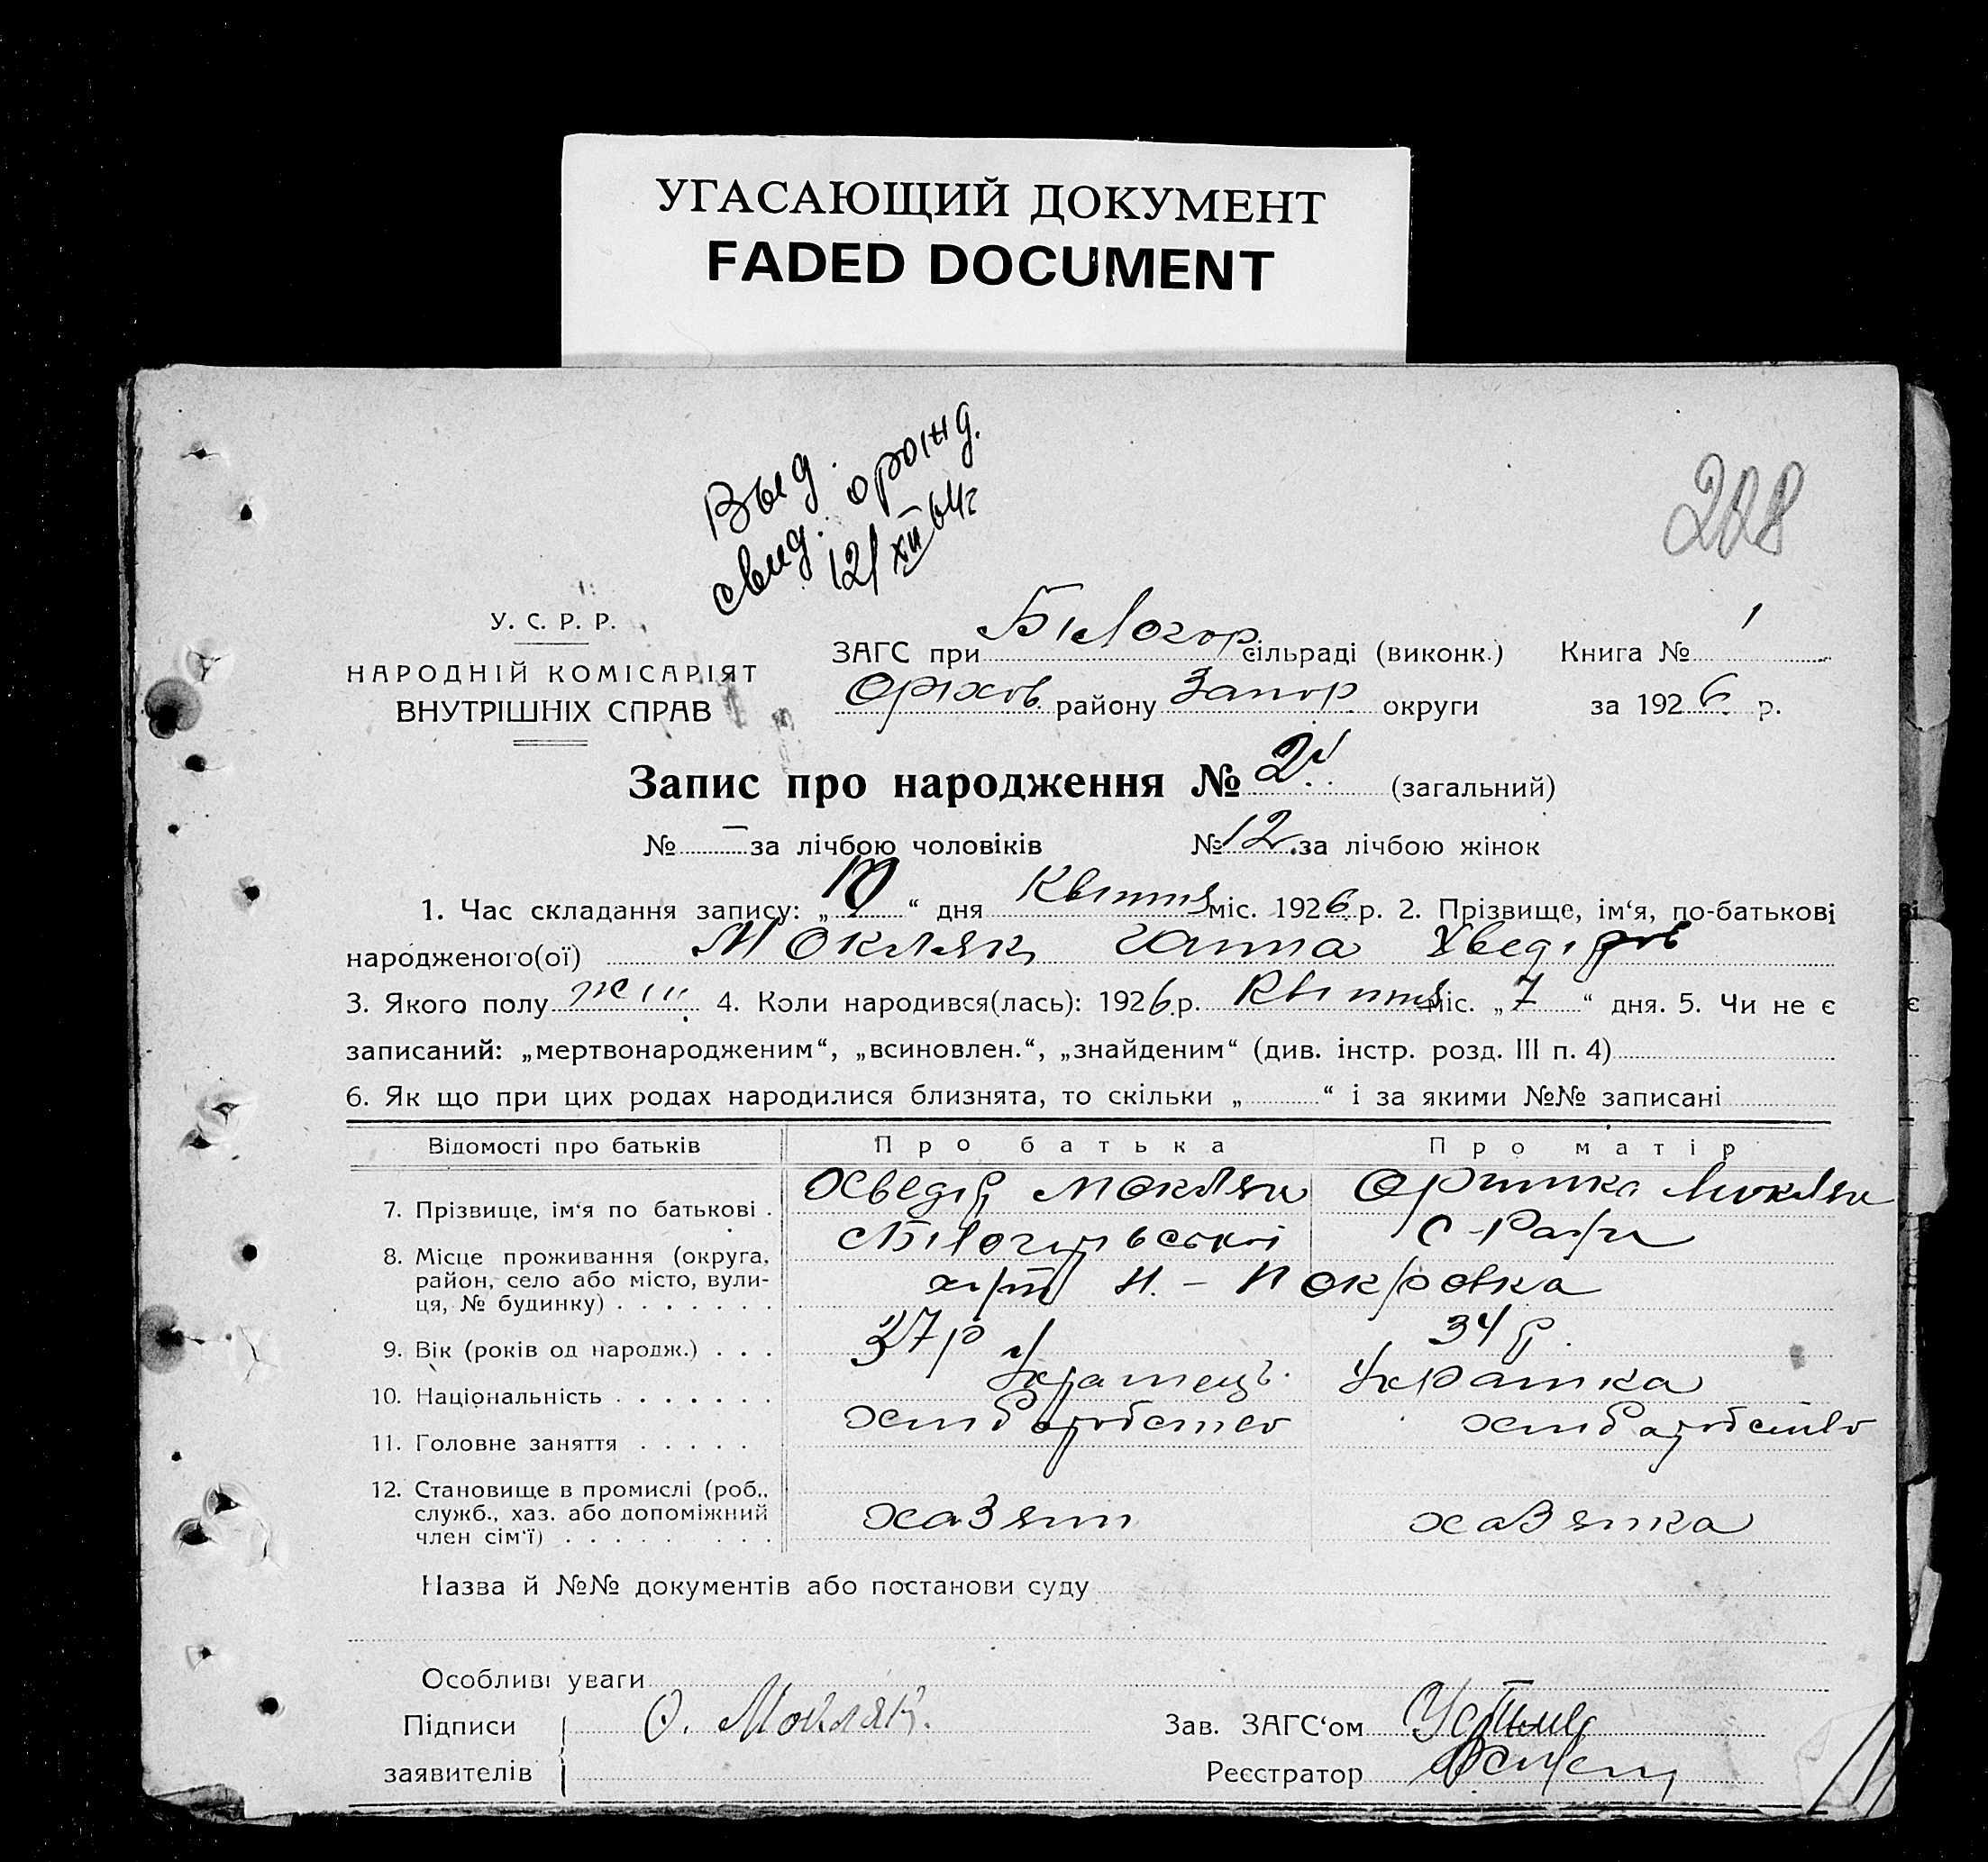 УГАСАЮЩИЙ ДОКУМЕНТ
FADED DOCUMENT
Выд.
свид. о рожд.
12/XII 64г
228
У. С. Р. Р.
НАРОДНІЙ КОМІСАРІЯТ
ВНУТРІШНІХ СПРАВ
ЗАГС при Білогор сільраді (виконк.) Книга № 1
Оріхов району Запор округи за 1926 р.
Запис про народження № (загальний)
№ – за лічбою чоловіків № 12 за лічбою жінок
1. Час складання запису: „ “ дня Квітня міс. 1926 р. 2. Прізвище, ім‘я, по-батькові
народженого(ої) Мокляк Ганна Хведіров
3. Якого полу жін. 4. Коли народився(лась): 1926 р. Квітня міс. „ 7 “ дня. 5. Чи не є
записаний: „мертвонародженим“, „всиновлен.“, „знайденим“ (див. інстр. розд. III п. 4)
6. Як що при цих родах народилися близнята, то скільки „ “ і за якими №№ записані
Відомості про батьків Про батька Про матір
7. Прізвище, ім‘я по батькові . Хведір Мокляк Оришка Мокляк
8. Місце проживання (округа, район, село або місто, вулиця, № будинку) С Ради
хут Н. - Покровка
9. Вік (років од народж.) . . . 37 р 34 р.
10. Національність . . . . . . . Українець Українка
11. Головне заняття . . . . . хліборобство хліборобство
12. Становище в промислі (роб., служб., хаз. або допоміжний член сім‘ї) хазяїн хазяйка
Назва й №№ документів або постанови суду
Особливі уваги
Підписи О. Мокляк. Зав. ЗАГС‘ом
заявителів Реєстратор